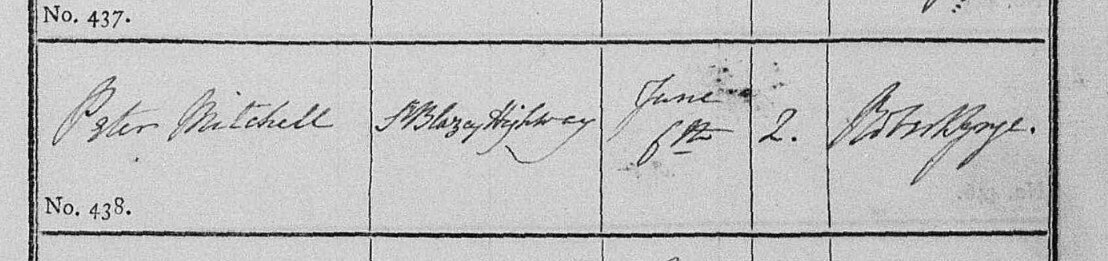 No. 437.
Peter Mitchell
St Blazey Highway
June
6th
2.
No. 438.